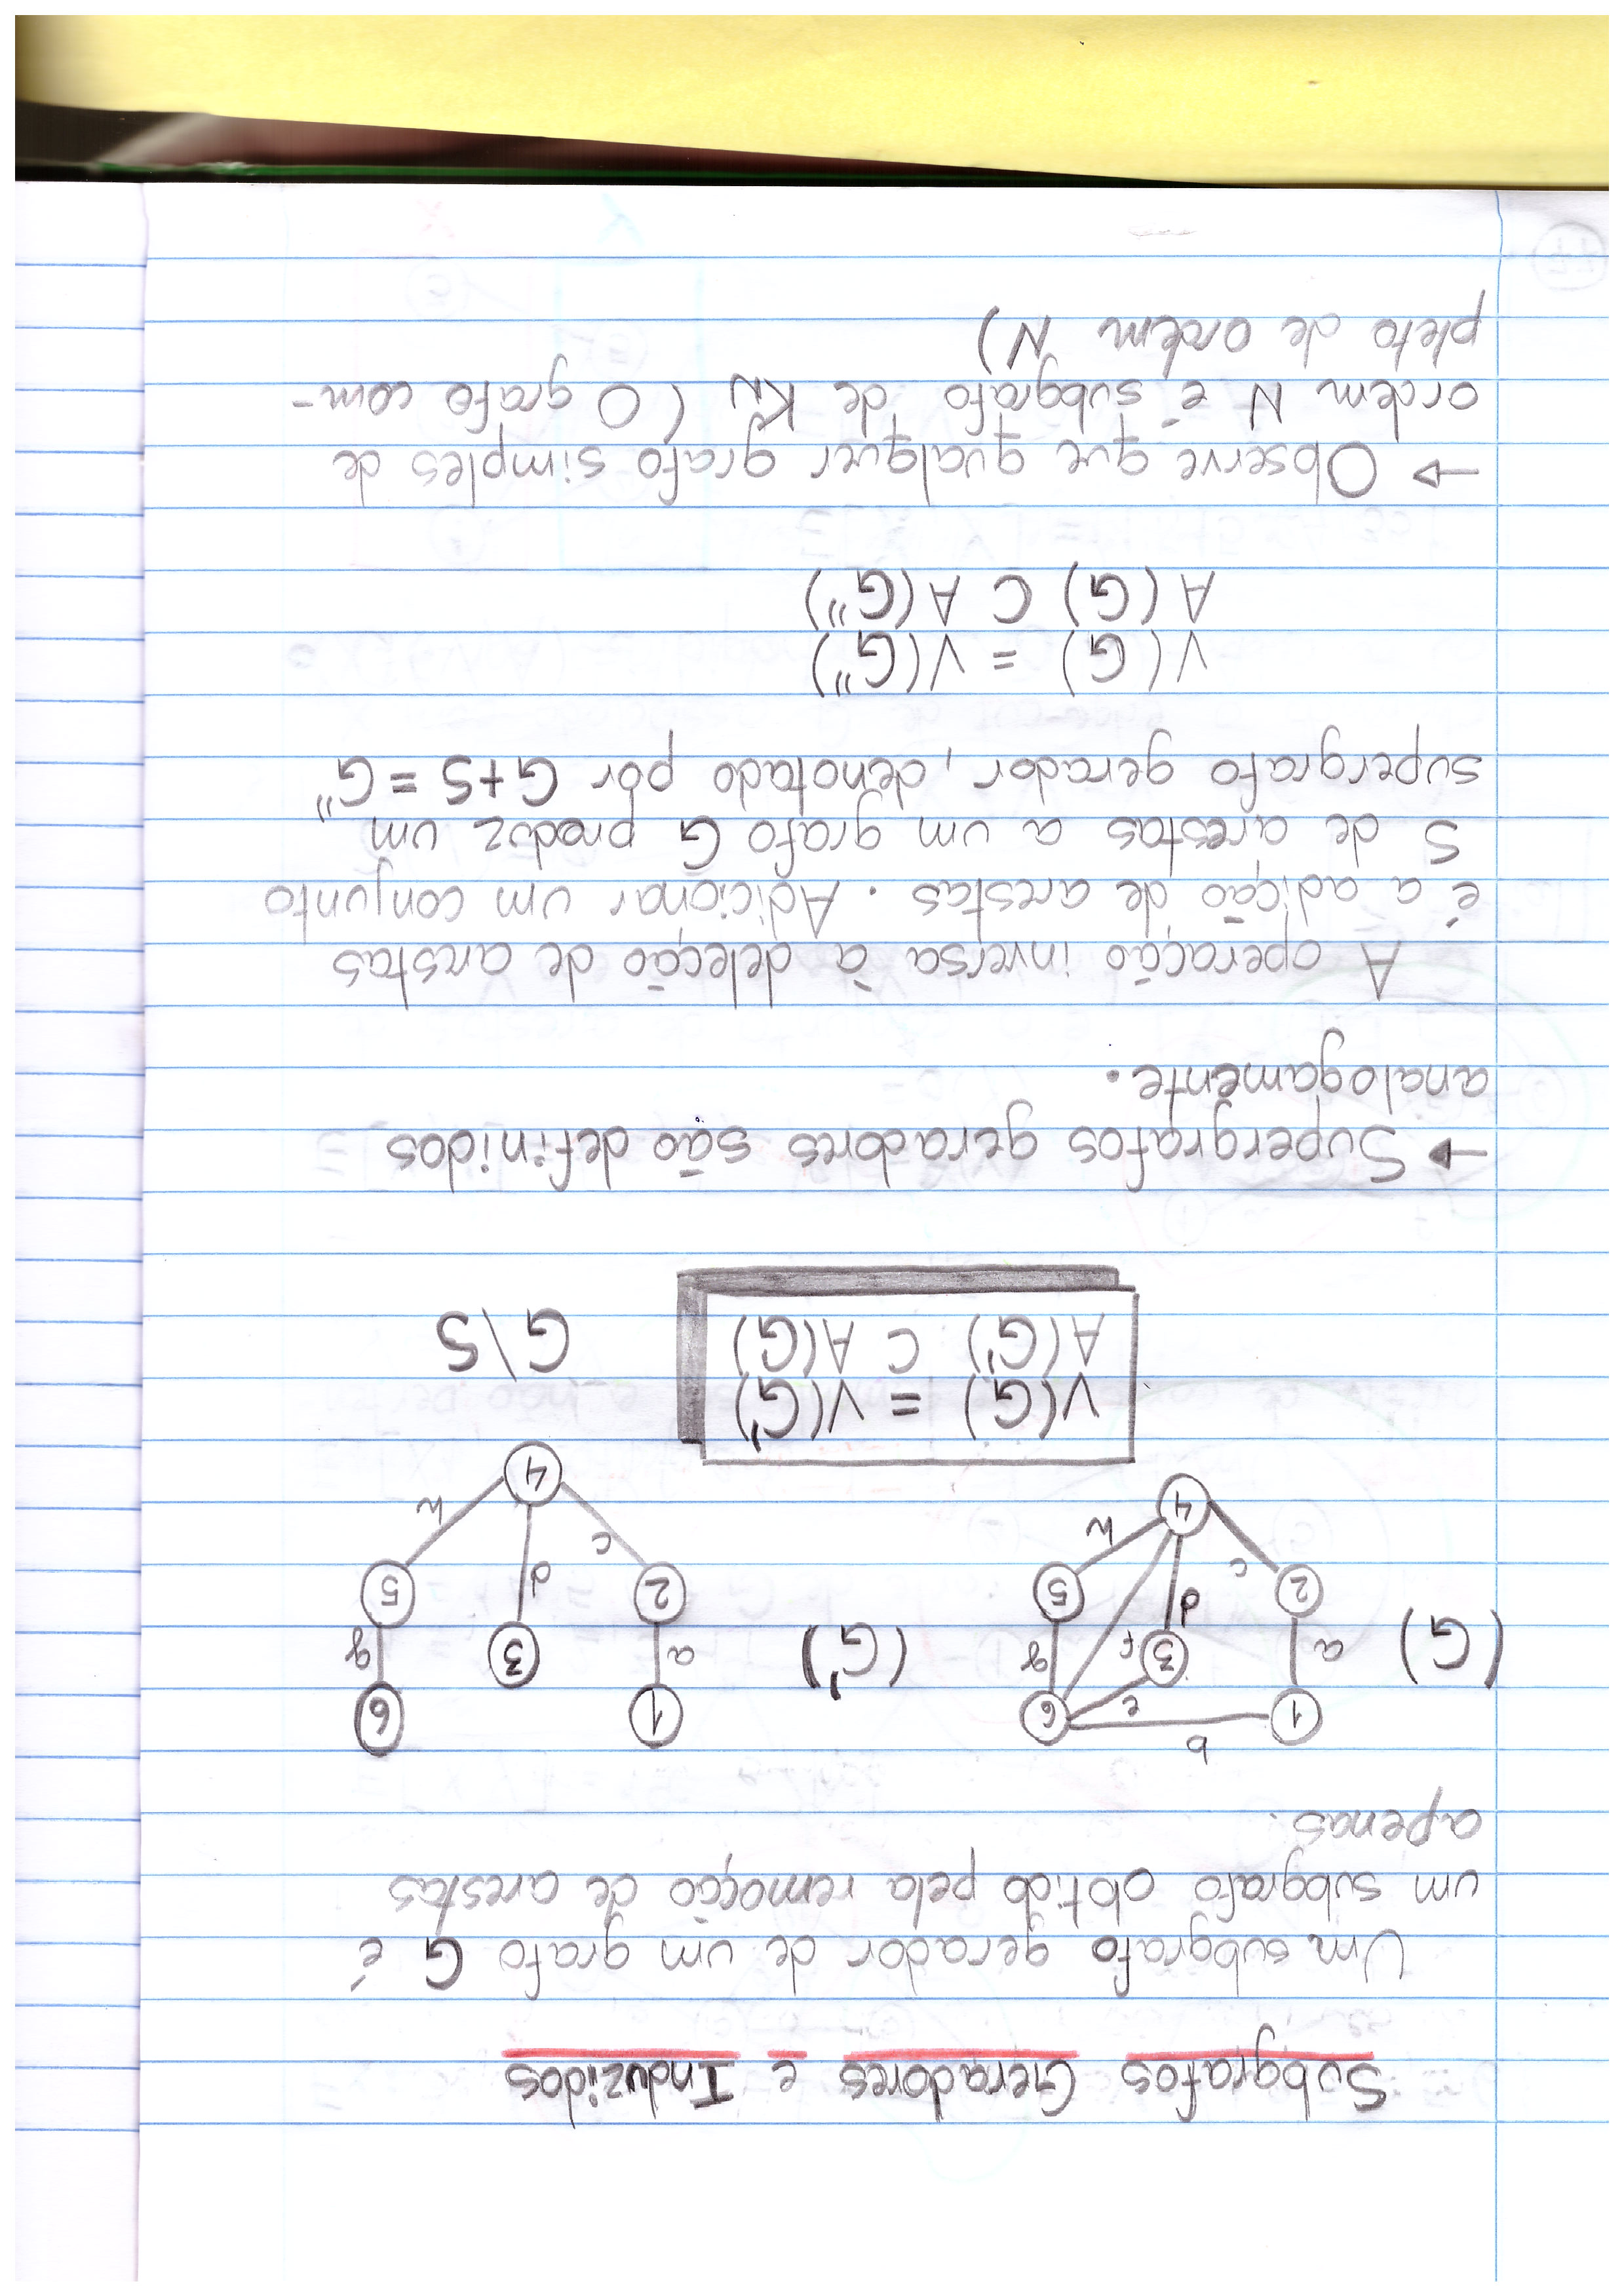 Subgrafos Geradores e Induzidos
Um subgrafo gerador de um grafo G é
um subgrafo obtido pela remoção de arestas
apenas.
(G) 1 b 6 e 3 f a d g 2 c 5 h 4
(G') 1 6 a 3 g 2 d 5 c h 4
V(G) = V(G')
A(G') ⊂ A(G)
G\S
→ Supergrafos geradores são definidos
analogamente.
A operação inversa à deleção de arestas
é a adição de arestas. Adicionar um conjunto
S de arestas a um grafo G produz um
supergrafo gerador, denotado por G+S = G''
V(G) = V(G'')
A(G) ⊂ A(G'')
→ Observe que qualquer grafo simples de
ordem N é subgrafo de KN (O grafo com-
pleto de ordem N)